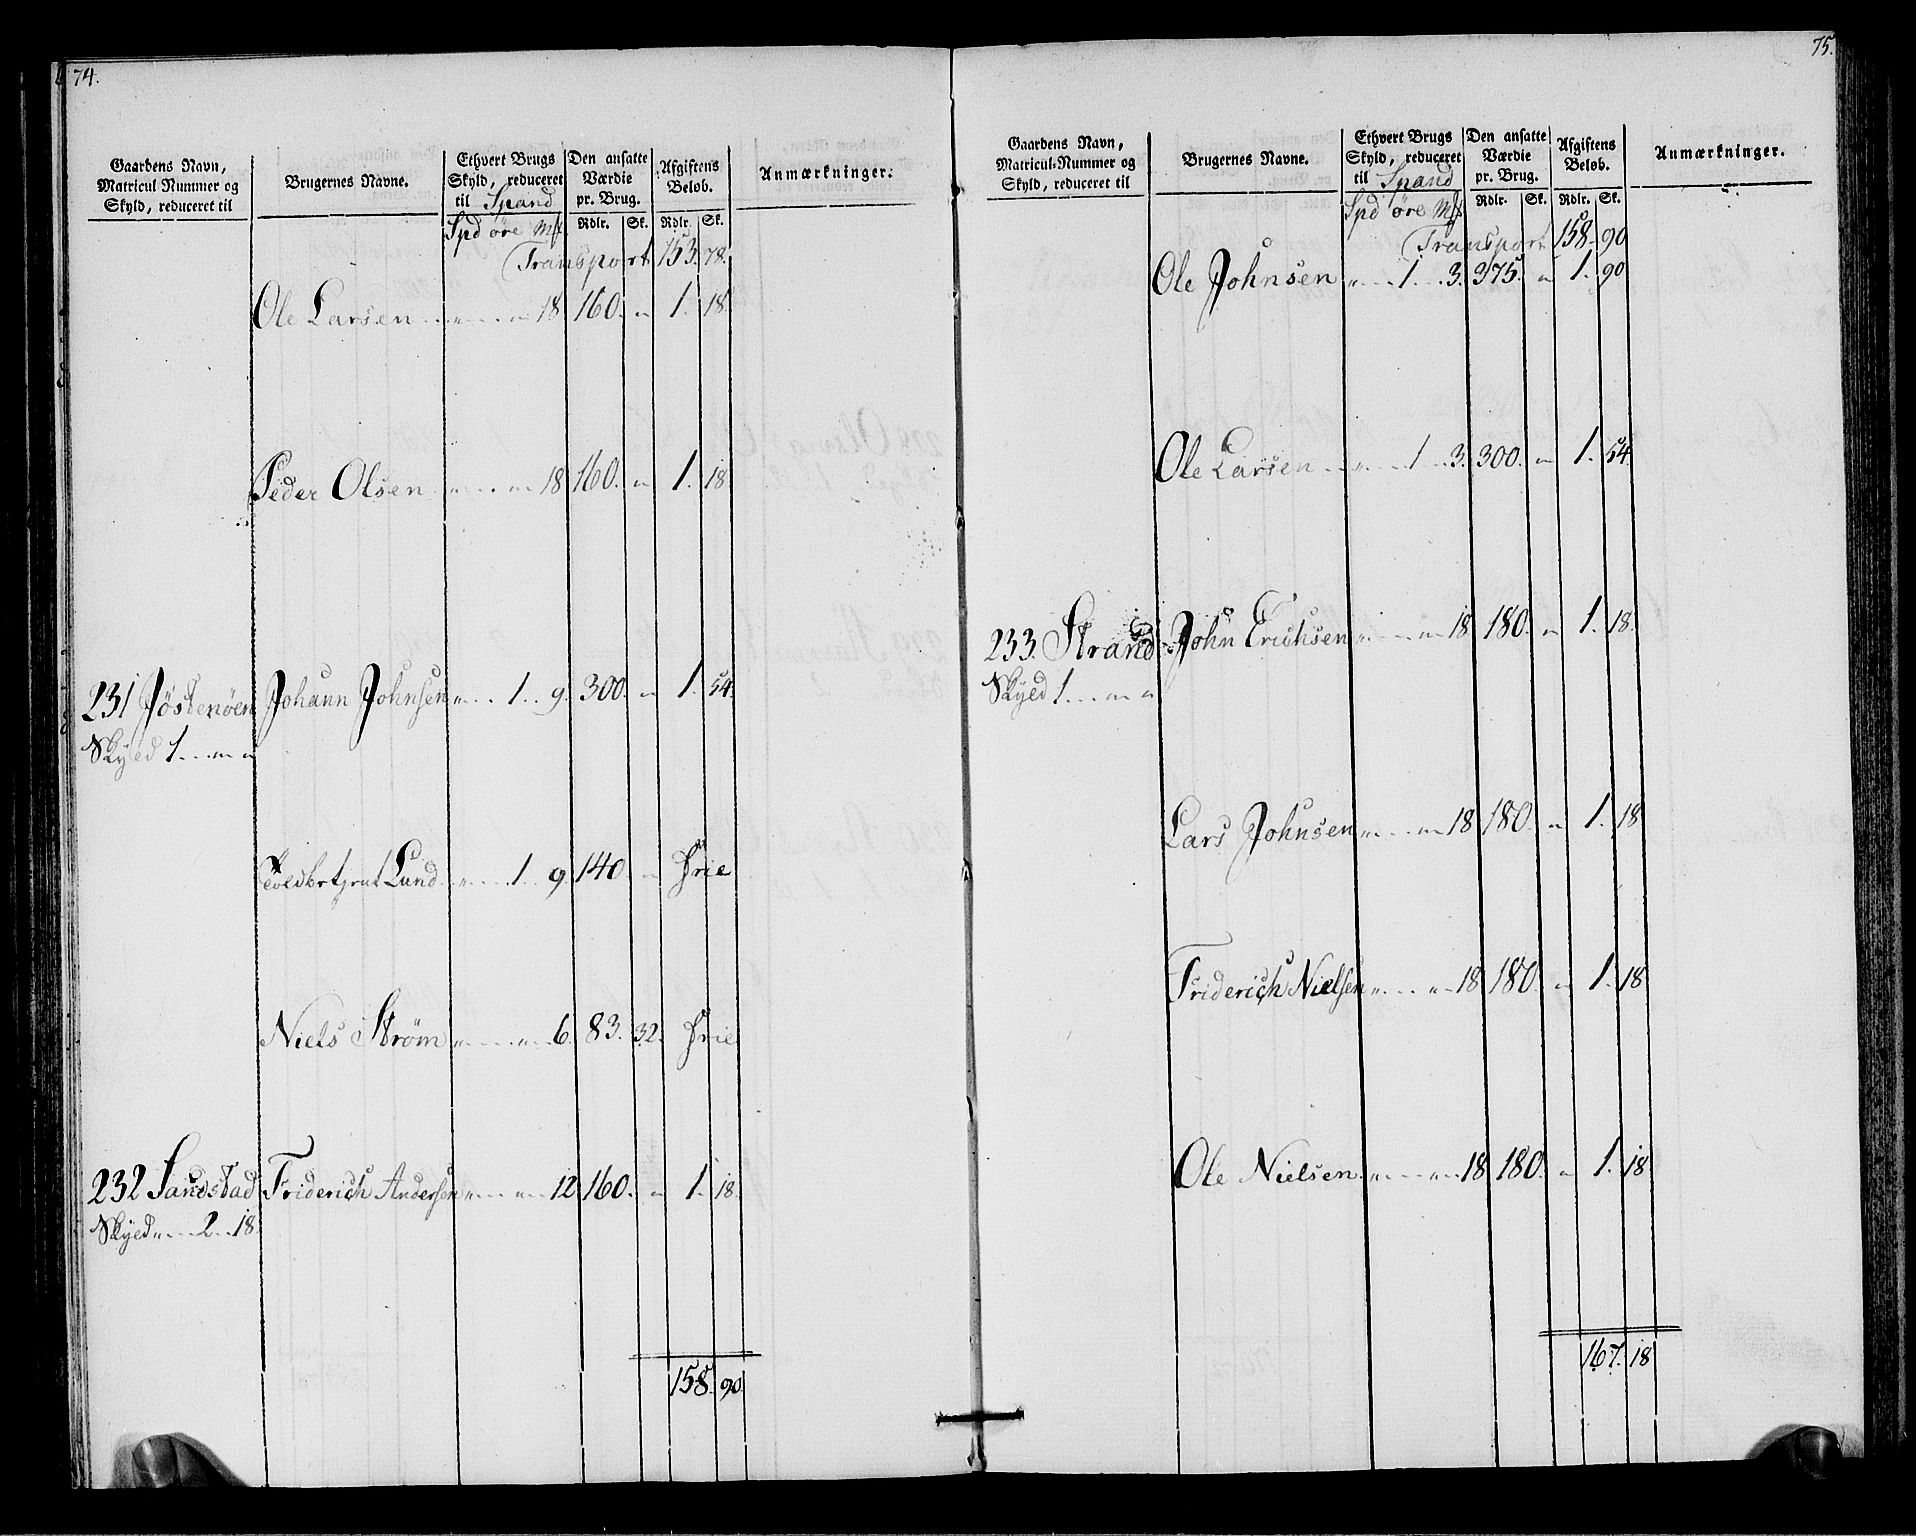 74.
Gaardens Navn, Matricul-Nummer og Skyld, reduceret til
Brugernes Navne.
Ethvert Brugs Skyld, reduceret til Spand
Den ansatte Værdie pr. Brug.
Afgiftens Beløb.
Anmærkninger.
Spd öre Mk Rdlr. Sk. Rdlr. Sk.
Transport 153. 78.
Ole Larsen " " 18 160. " 1. 18.
Peder Olsen " " 18 160. " 1. 18.
231 Jöstenöen Johann Johnsen " 1 9. 300. " 1. 54.
Skyld 1 " "
Lund " 1 9 140 " Frie
Niels Strøm " " 6. 83. 32. Frie
232 Sandstad Friderich Andersen " " 12 160. " 1. 18.
Skyld " 2 18.
158. 90.
75.
Gaardens Navn, Matricul-Nummer og Skyld, reduceret til
Brugernes Navne.
Ethvert Brugs Skyld, reduceret til Spand
Den ansatte Værdie pr. Brug.
Afgiftens Beløb.
Anmærkninger.
Spd öre Mk Rdlr. Sk. Rdlr. Sk.
Transport 158. 90
Ole Johnsen " 1 3. 375. " 1. 90
Ole Larsen " 1 3. 300. " 1. 54.
233. Strand John Erichsen " " 18 180. " 1. 18.
Skyld 1 " "
Lars Johnsen " " 18 180. " 1. 18
Friderich Nielsen " " 18 180. " 1. 18
Ole Nielsen " " 18 180. " 1. 18
167. 18